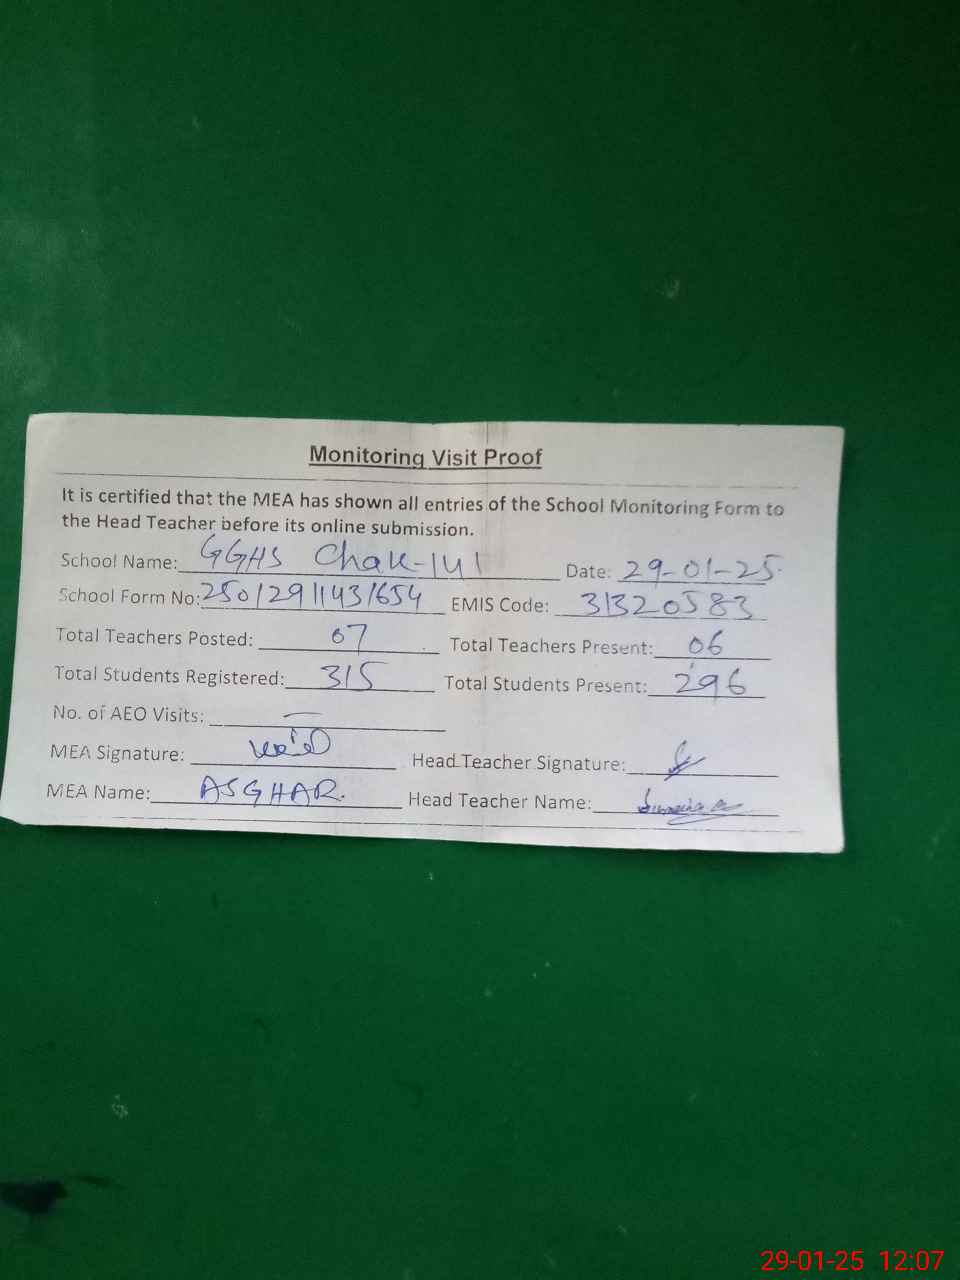 Monitoring Visit Proof
It is certified that the MEA has shown all entries of the School Monitoring Form to
the Head Teacher before its online submission.
School Name: GGHS Chak-141 Date: 29-01-25
School Form No: 25012911431654 EMIS Code: 31320583
Total Teachers Posted: 07 Total Teachers Present: 06
Total Students Registered: 315 Total Students Present: 296
No. of AEO Visits: —
MEA Signature: Head Teacher Signature:
MEA Name: ASGHAR. Head Teacher Name:
29-01-25 12:07